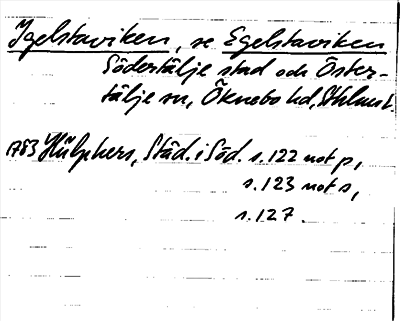 Igelstaviken, se Egelstaviken
Södertälje stad och Öster-
tälje sn, Öknebo hd, Sthlms l.
1783 Hülphers, Städ. i Söd. s. 122 not p,
s. 123 not s,
s. 127.